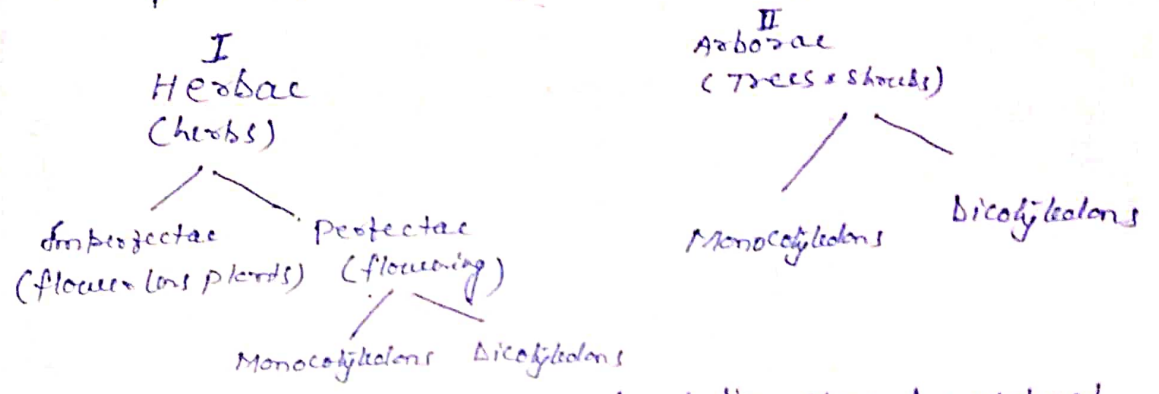 I
Herbae
(herbs)
Imperfectae
(flower less plants)
Perfectae
(flowering)
Monocotyledons
Dicotyledons
II
Arborae
(Trees & Shrubs)
Monocotyledons
Dicotyledons